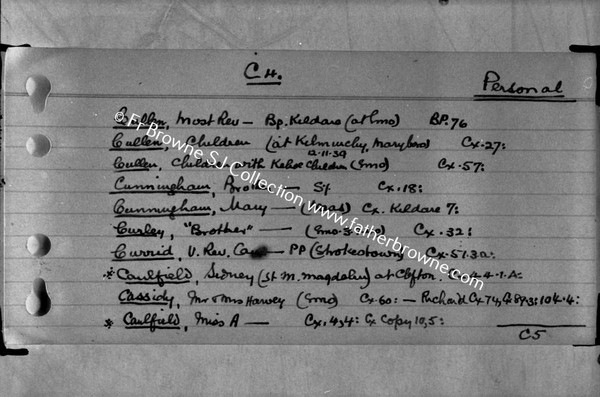 C.H.
Personal
Cullen, Most Rev — Bp. Kildare (at Emo) BP. 76
Cullen, Children (at Kilminchy, Maryboro) Cx. 27:
2.11.39
Cullen, Children with Kehoe Children (Emo) Cx. 57:
Cunningham, — SJ Cx. 18:
Cunningham, Mary — Cx. Kildare 7:
Curley, "Brother" — Cx. 32:
Currid, V. Rev. — PP (Strokestown) Cx. 57.32:
* Caulfield, Sidney (St. M. Magdalen) at Clifton. 4.1.A:
Cassidy, Mr & Mrs Harvey (Emo) Cx. 60: — Richard Cx 74, 104.4:
* Caulfield, Miss A — Cx. 4,4: Cx Copy 10,5:
C5
© Fr Browne S.J. Collection www.fatherbrowne.com